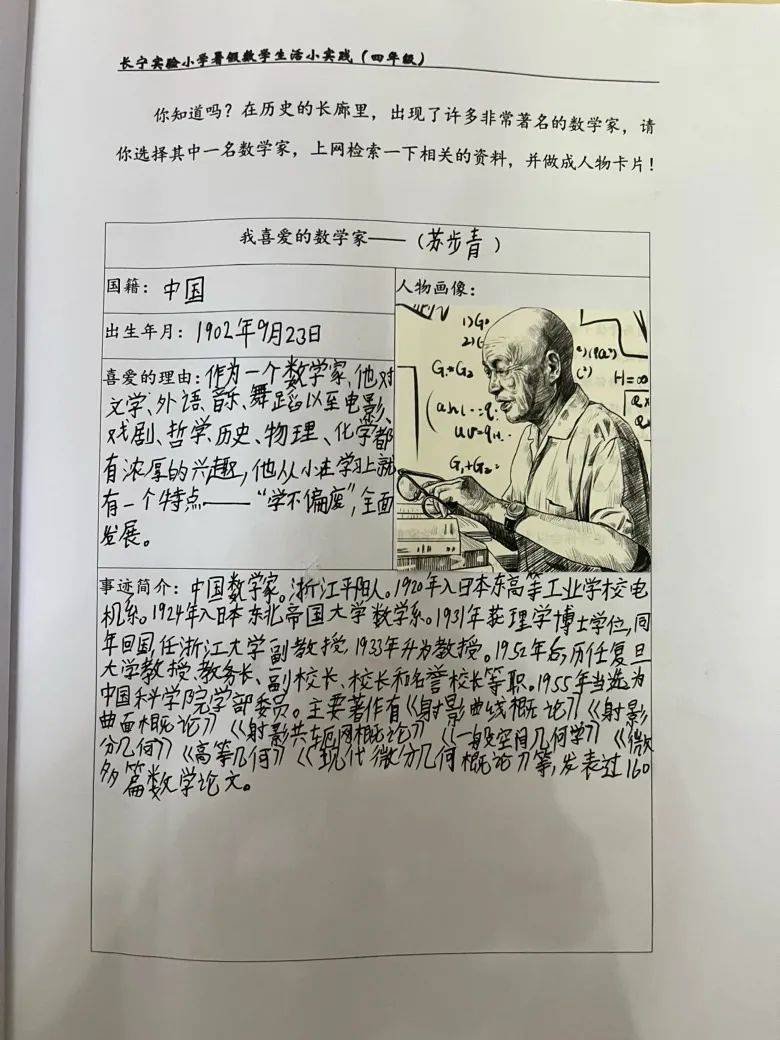 长宁实验小学暑假数学生活小实践（四年级）
你知道吗？在历史的长廊里，出现了许多非常著名的数学家，请
你选择其中一名数学家，上网检索一下相关的资料，并做成人物卡片！
我喜爱的数学家——（苏步青）
国籍：中国
人物画像：
出生年月：1902年9月23日
喜爱的理由：作为一个数学家，他对
文学、外语、音乐、舞蹈以至电影、
戏剧、哲学、历史、物理、化学都
有浓厚的兴趣，他从小在学习上就
有一个特点——“学不偏废”，全面
发展。
1)G
2)G
G₁*G₂
H=∞
G₁+G₂
事迹简介：中国数学家。浙江平阳人。1920年入日本东高等工业学校电
机系。1924年入日本东北帝国大学数学系。1931年获理学博士学位，同
年回国，任浙江大学副教授，1933年升为教授。1952年后，历任复旦
大学教授、教务长、副校长、校长和名誉校长等职。1955年当选为
中国科学院学部委员。主要著作有《射影曲线概论》《射影
曲面概论》《射影共轭网概论》《一般空间几何学》《微
分几何》《高等几何》《现代微分几何概论》等，发表过160
多篇数学论文。